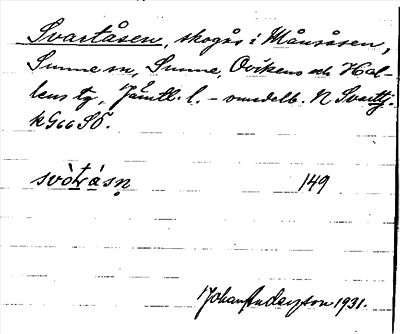 Svartåsen, skogås i Månsåsen,
Sunne sn, Sunne, Ovikens och Hal-
lens tg, Jämtl. l. – omedelb. N Svarttj.
k G66 SÖ.
svòtrásṇ 149
Johan Anderzson 1931.